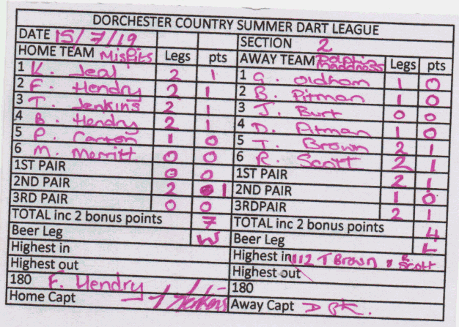 DORCHESTER COUNTRY SUMMER DART LEAGUE
DATE 15/7/19 SECTION 2
HOME TEAM Misfits Legs pts AWAY TEAM Legs pts
1 K. Jeal 2 1 1 G. Oldham 1 0
2 F. Hendry 2 1 2 B. Pitman 1 0
3 T. Jenkins 2 1 3 J. Burt 0 0
4 B. Hendry 2 1 4 D. Pitman 1 0
5 P. Canton 1 0 5 T. Brown 2 1
6 M. Merritt 0 0 6 R. Scott 2 1
1ST PAIR 0 0 1ST PAIR 2 1
2ND PAIR 2 1 2ND PAIR 1 0
3RD PAIR 0 0 3RDPAIR 2 1
TOTAL inc 2 bonus points 7 TOTAL inc 2 bonus points 4
Beer Leg W Beer Leg L
Highest in Highest in 112 T Brown & R Scott
Highest out Highest out
180 F. Hendry 180
Home Capt Away Capt